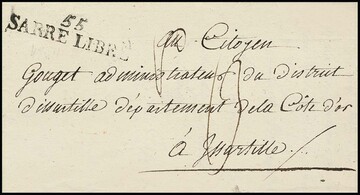 55
SARRE LIBRE
Au Citoyen
Gouget administrateur du district
d'issurtille département de la Côte d'or
à Issurtille /.